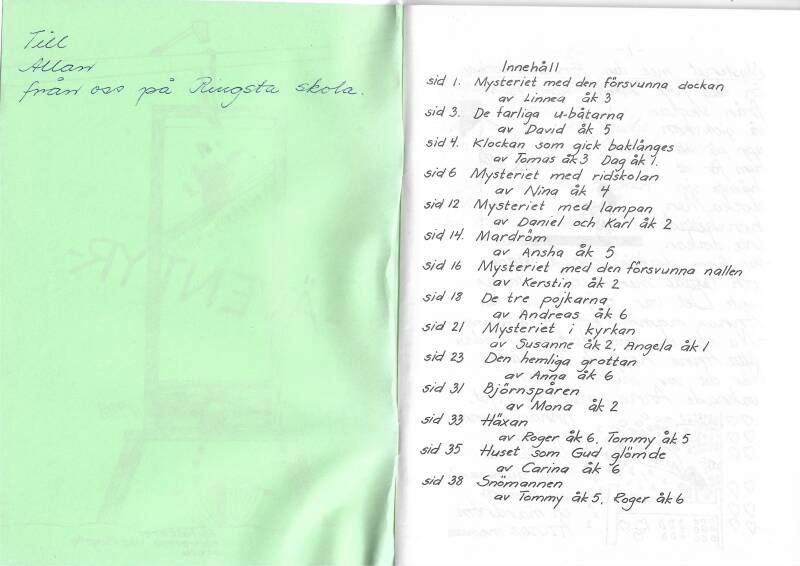 Till
Allan
från oss på Ringsta skola.
Innehåll
sid 1. Mysteriet med den försvunna dockan
av Linnea åk 3
sid 3. De farliga u-båtarna
av David åk 5
sid 4. Klockan som gick baklänges
av Tomas åk 3 Dag åk 1.
sid 6 Mysteriet med ridskolan
av Nina åk 4
sid 12 Mysteriet med lampan
av Daniel och Karl åk 2
sid 14. Mardröm
av Ansha åk 5
sid 16 Mysteriet med den försvunna nallen
av Kerstin åk 2
sid 18 De tre pojkarna
av Andreas åk 6
sid 21 Mysteriet i kyrkan
av Susanne åk 2, Angela åk 1
sid 23 Den hemliga grottan
av Anna åk 6
sid 31 Björnspåren
av Mona åk 2
sid 33 Häxan
av Roger åk 6, Tommy åk 5
sid 35 Huset som Gud glömde
av Carina åk 6
sid 38 Snömannen
av Tommy åk 5, Roger åk 6